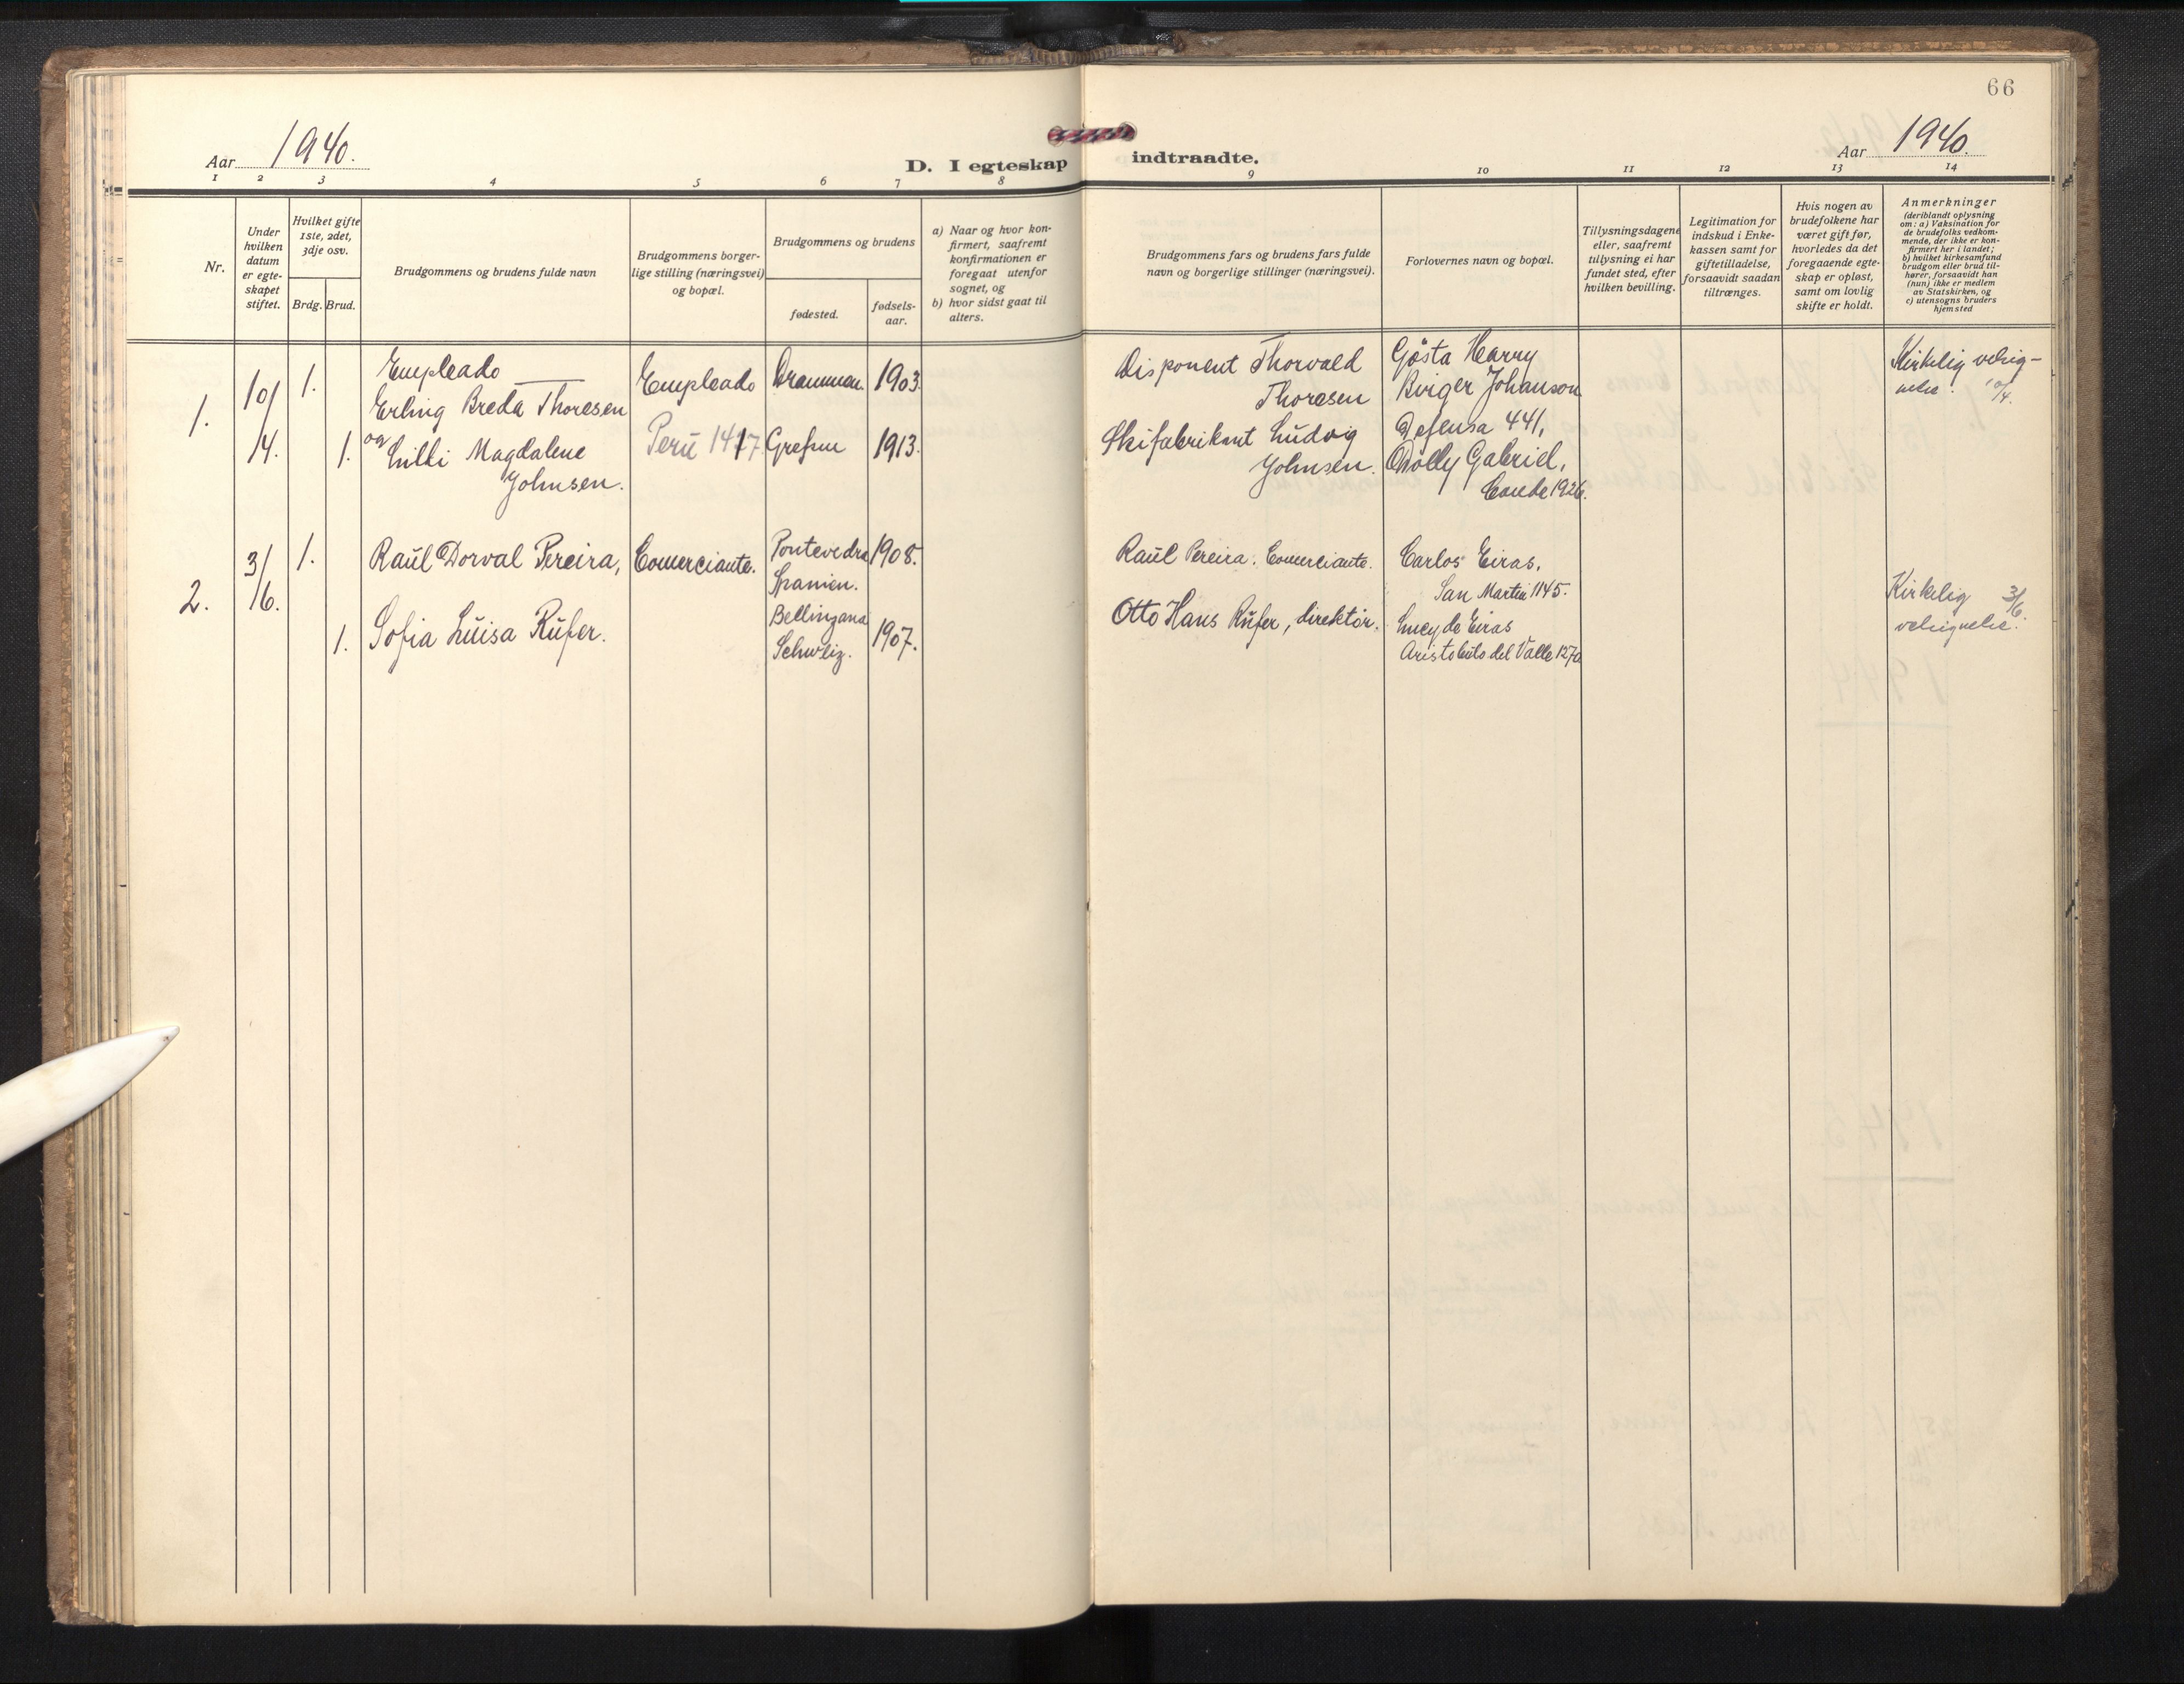 66
Aar 1940.
D. I egteskap indtraadte.
Aar 1940.
1 2 3 4 5 6 7 8 9 10 11 12 13 14
Nr.
Under
hvilken
datum
er egte-
skapet
stiftet.
Hvilket gifte
1ste, 2det,
3dje osv.
Brdg. Brud.
Brudgommens og brudens fulde navn
Brudgommens borger-
lige stilling (næringsvei)
og bopæl.
Brudgommens og brudens
fødested.
fødsels-
aar.
a) Naar og hvor kon-
firmert, saafremt
konfirmationen er
foregaat utenfor
sognet, og
b) hvor sidst gaat til
alters.
Brudgommens fars og brudens fars fulde
navn og borgerlige stillinger (næringsvei).
Forlovernes navn og bopæl.
Tillysningsdagene
eller, saafremt
tillysning ei har
fundet sted, efter
hvilken bevilling.
Legitimation for
indskud i Enke-
kassen samt for
giftetilladelse,
forsaavidt saadan
tiltrænges.
Hvis nogen av
brudefolkene har
været gift før,
hvorledes da det
foregaaende egte-
skap er opløst,
samt om lovlig
skifte er holdt.
Anmerkninger
(deriblandt oplysning
om: a) Vaksination for
de brudefolks vedkom-
mende, der ikke er kon-
firmert her i landet;
b) hvilket kirkesamfund
brudgom eller brud til-
hører, forsaavidt han
(hun) ikke er medlem
av Statskirken, og
c) utensogns bruders
hjemsted
1.
10/
/4.
1.
1.
Empleado
Erling Breda Thoresen
og
Lilli Magdalene
Johnsen.
Empleado
Perú 1417
Drammen. 1903.
Grefsen 1913.
Disponent Thorvald
Thoresen
Skifabrikant Ludvig
Johnsen.
Gösta Harry
Birger Johanson
Defensa 441,
Dolly Gabriel,
Conde 1926.
Kirkelig velsig-
nelse. 10/4.
2.
3/
/6.
1.
1.
Raúl Dorval Pereira,
Sofia Luisa Rüfer.
Comerciante.
Pontevedra 1908.
Spanien.
Bellinzana
Schweiz. 1907.
Raúl Pereira. Comerciante.
Otto Hans Rüfer, direktör.
Carlos Eiras,
San Martin 1145.
Lucy de Eiras
Aristobulo del Valle 1270
Kirkelig 3/6
velsignelse.